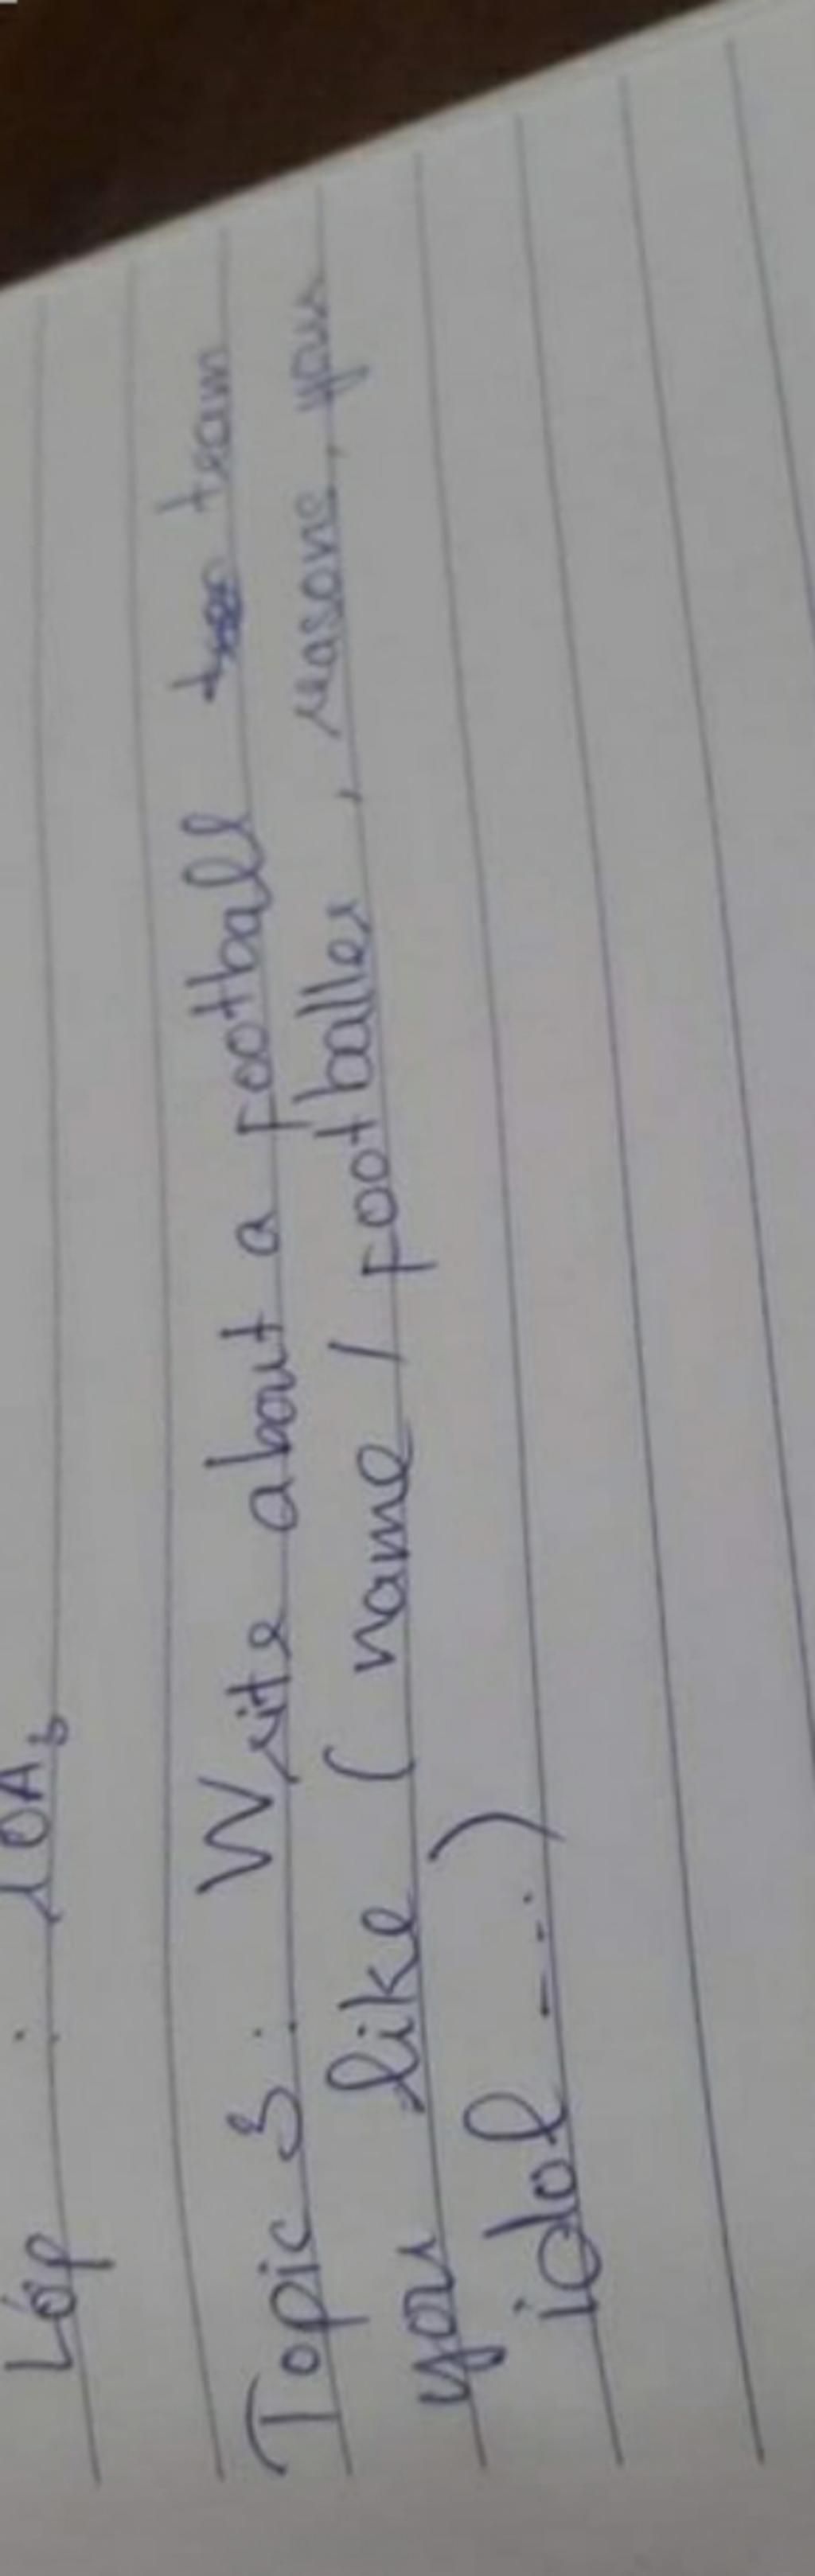 Lớp : 10A3
Topic 3 : Write about a football team
you like ( name / footballer , reasone, your
idol ---. )